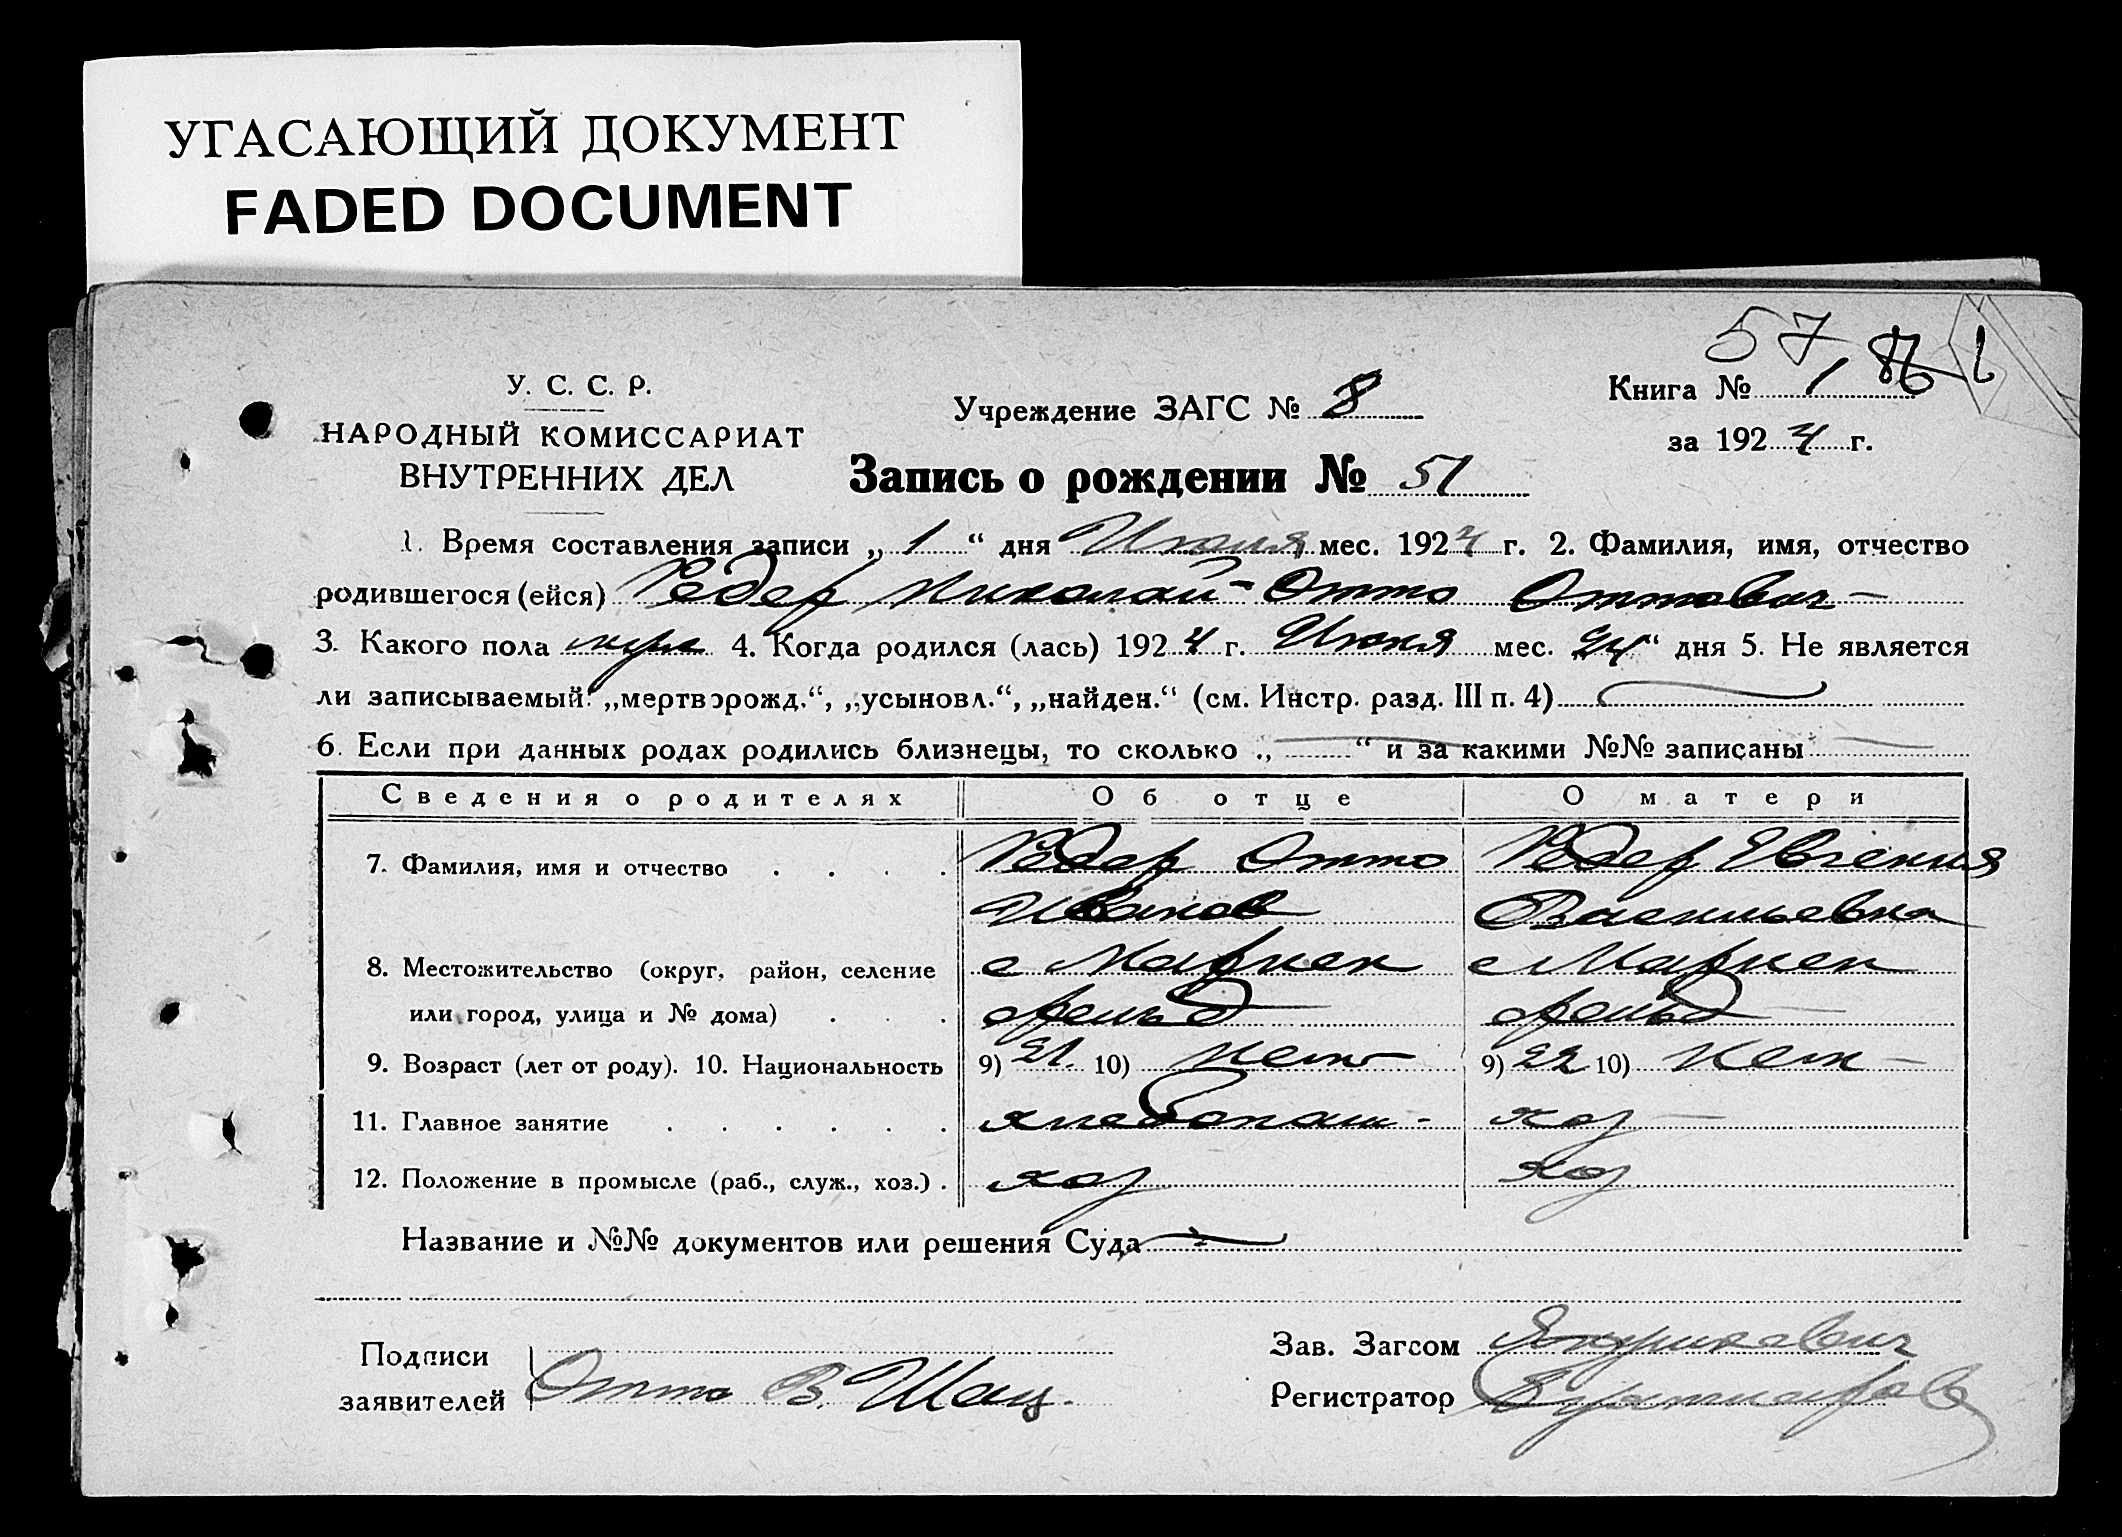 УГАСАЮЩИЙ ДОКУМЕНТ
FADED DOCUMENT
57
У. С. С. Р.
НАРОДНЫЙ КОМИССАРИАТ
ВНУТРЕННИХ ДЕЛ
Учреждение ЗАГС № 8
Книга № 1
за 1924 г.
Запись о рождении № 51
1. Время составления записи „ 1 “ дня Июля мес. 1924 г. 2. Фамилия, имя, отчество
родившегося (ейся) Редер Николай-Отто Оттович —
3. Какого пола муж 4. Когда родился (лась) 1924 г. Июня мес. „24“ дня 5. Не является
ли записываемый: „мертворожд.“, „усыновл.“, „найден.“ (см. Инстр. разд. III п. 4) —
6. Если при данных родах родились близнецы, то сколько „ — “ и за какими №№ записаны —
Сведения о родителях Об отце О матери
7. Фамилия, имя и отчество . . . . Редер Отто Редер Евгения
Иванов Васильевна
8. Местожительство (округ, район, селение с Мариен с Мариен
или город, улица и № дома) . . . фельд — фельд —
9. Возраст (лет от роду). 10. Национальность 9) 21. 10) Нем — 9) 22 10) Нем —
11. Главное занятие . . . . . . хлебопаш - хоз —
12. Положение в промысле (раб., служ., хоз.) . хоз хоз
Название и №№ документов или решения Суда —
Подписи
заявителей Отто В. Шац.
Зав. Загсом
Регистратор